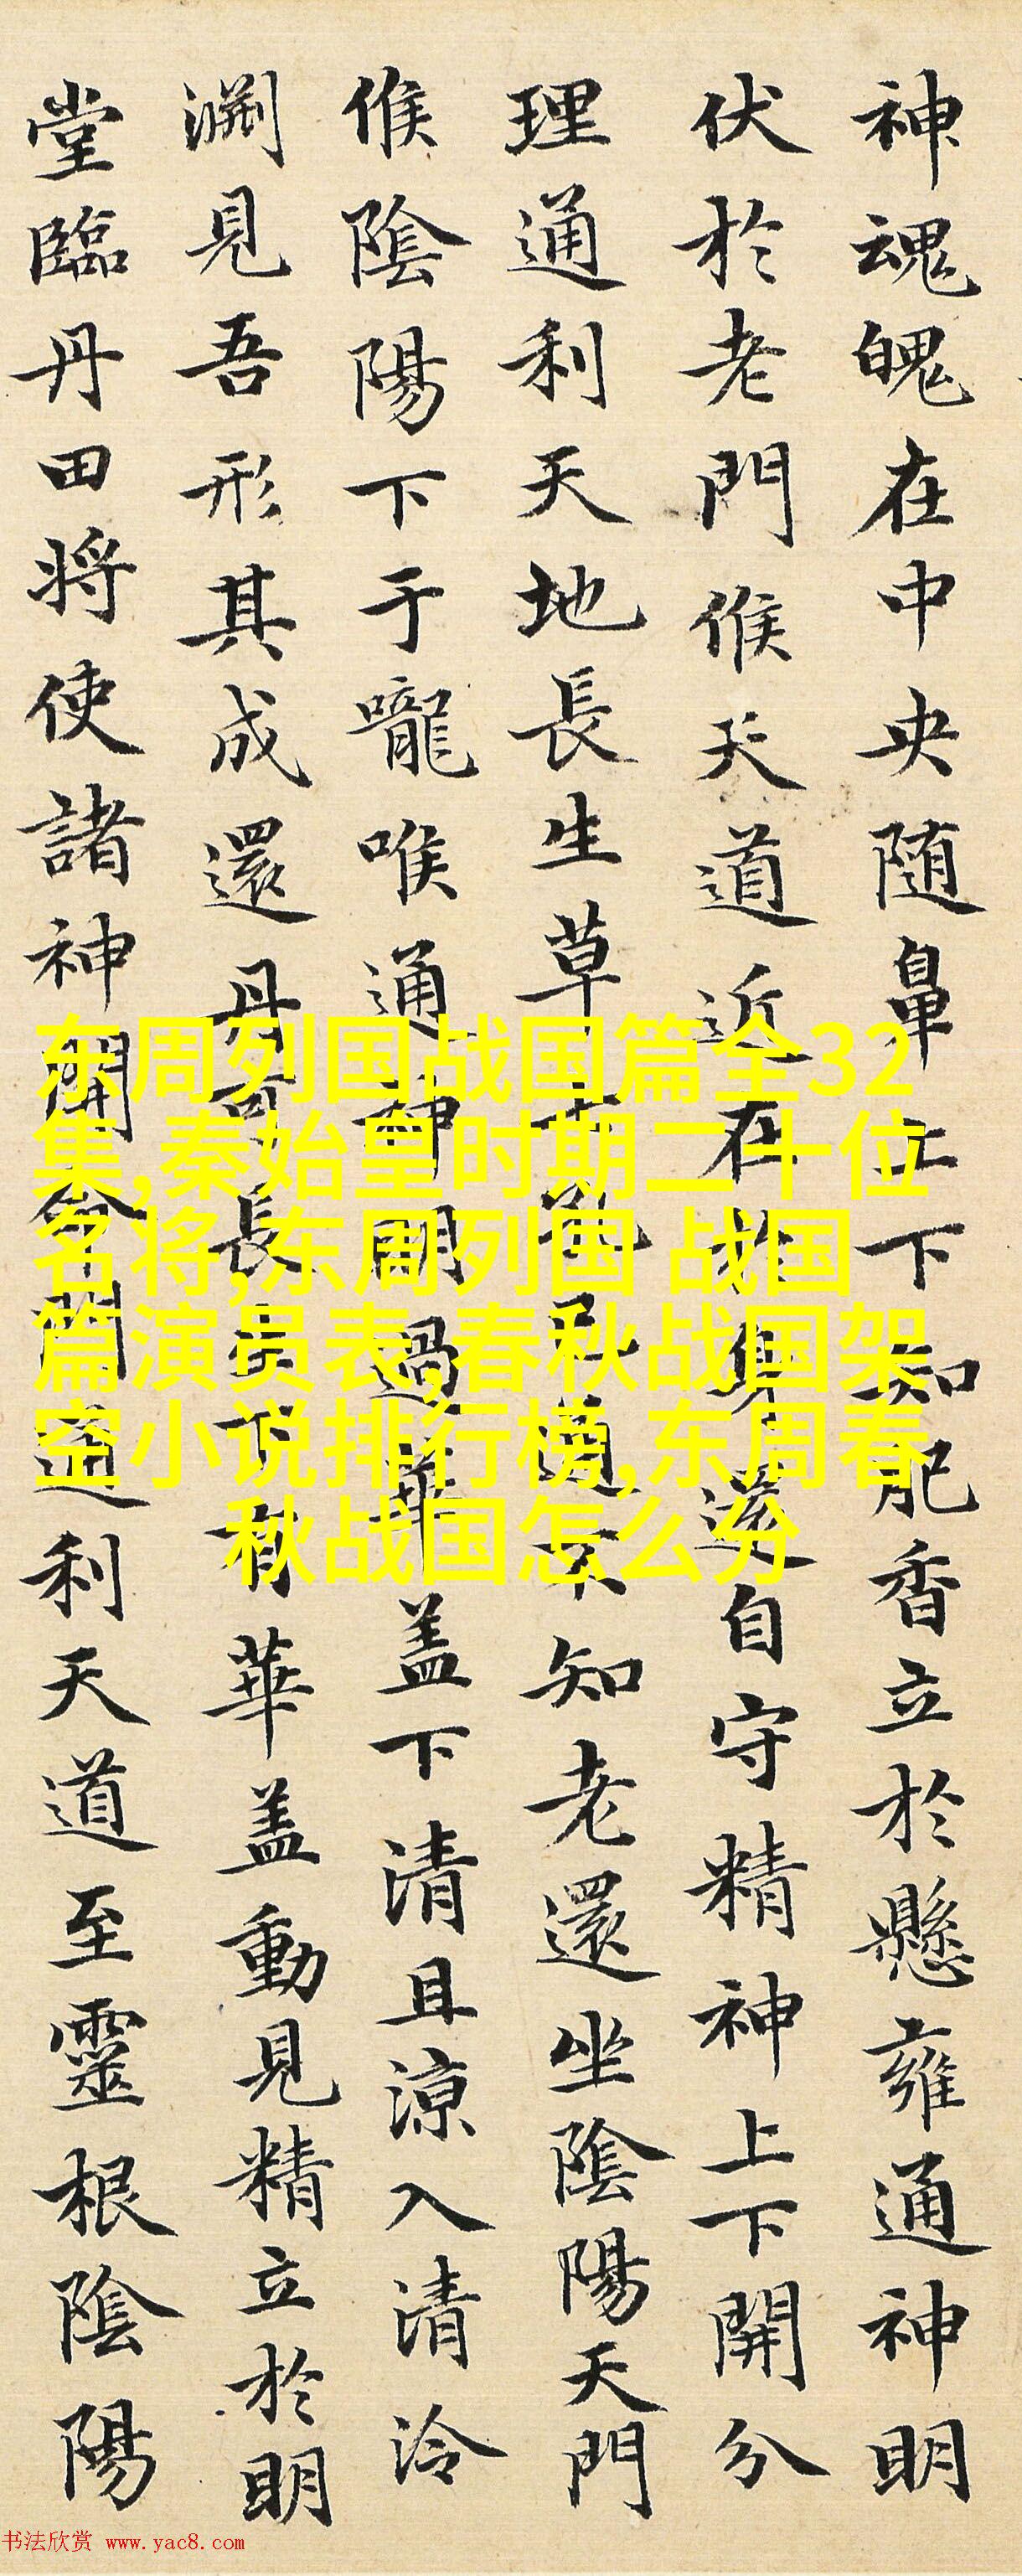 神魂魄在中央随鼻上下知肥香立於懸雍通神明
伏於老門候天道近在於身還自守精神上下開分
理通利天地長生草七孔已通不知老還坐陰陽天門
候陰陽下于嚨喉通神明過華盖下清且涼入清泠
淵見吾形其成還丹可長生下有華盖動見精立於明
堂臨丹田將使諸神開命門通利天道至靈根陰陽
东周列国战国篇全32
集,秦始皇时期二十位
名将,东周列国 战国
篇演员表,春秋战国架
空小说排行榜,东周春
秋战国怎么分
书法欣赏 www.yac8.com